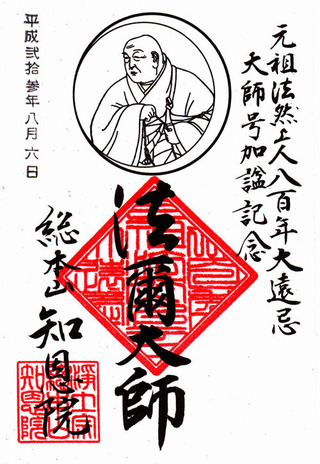 元祖法然上人八百年大遠忌
大師号加諡記念
法爾大師
総本山知恩院
平成弐拾参年八月六日
浄土宗
総本山
知恩院